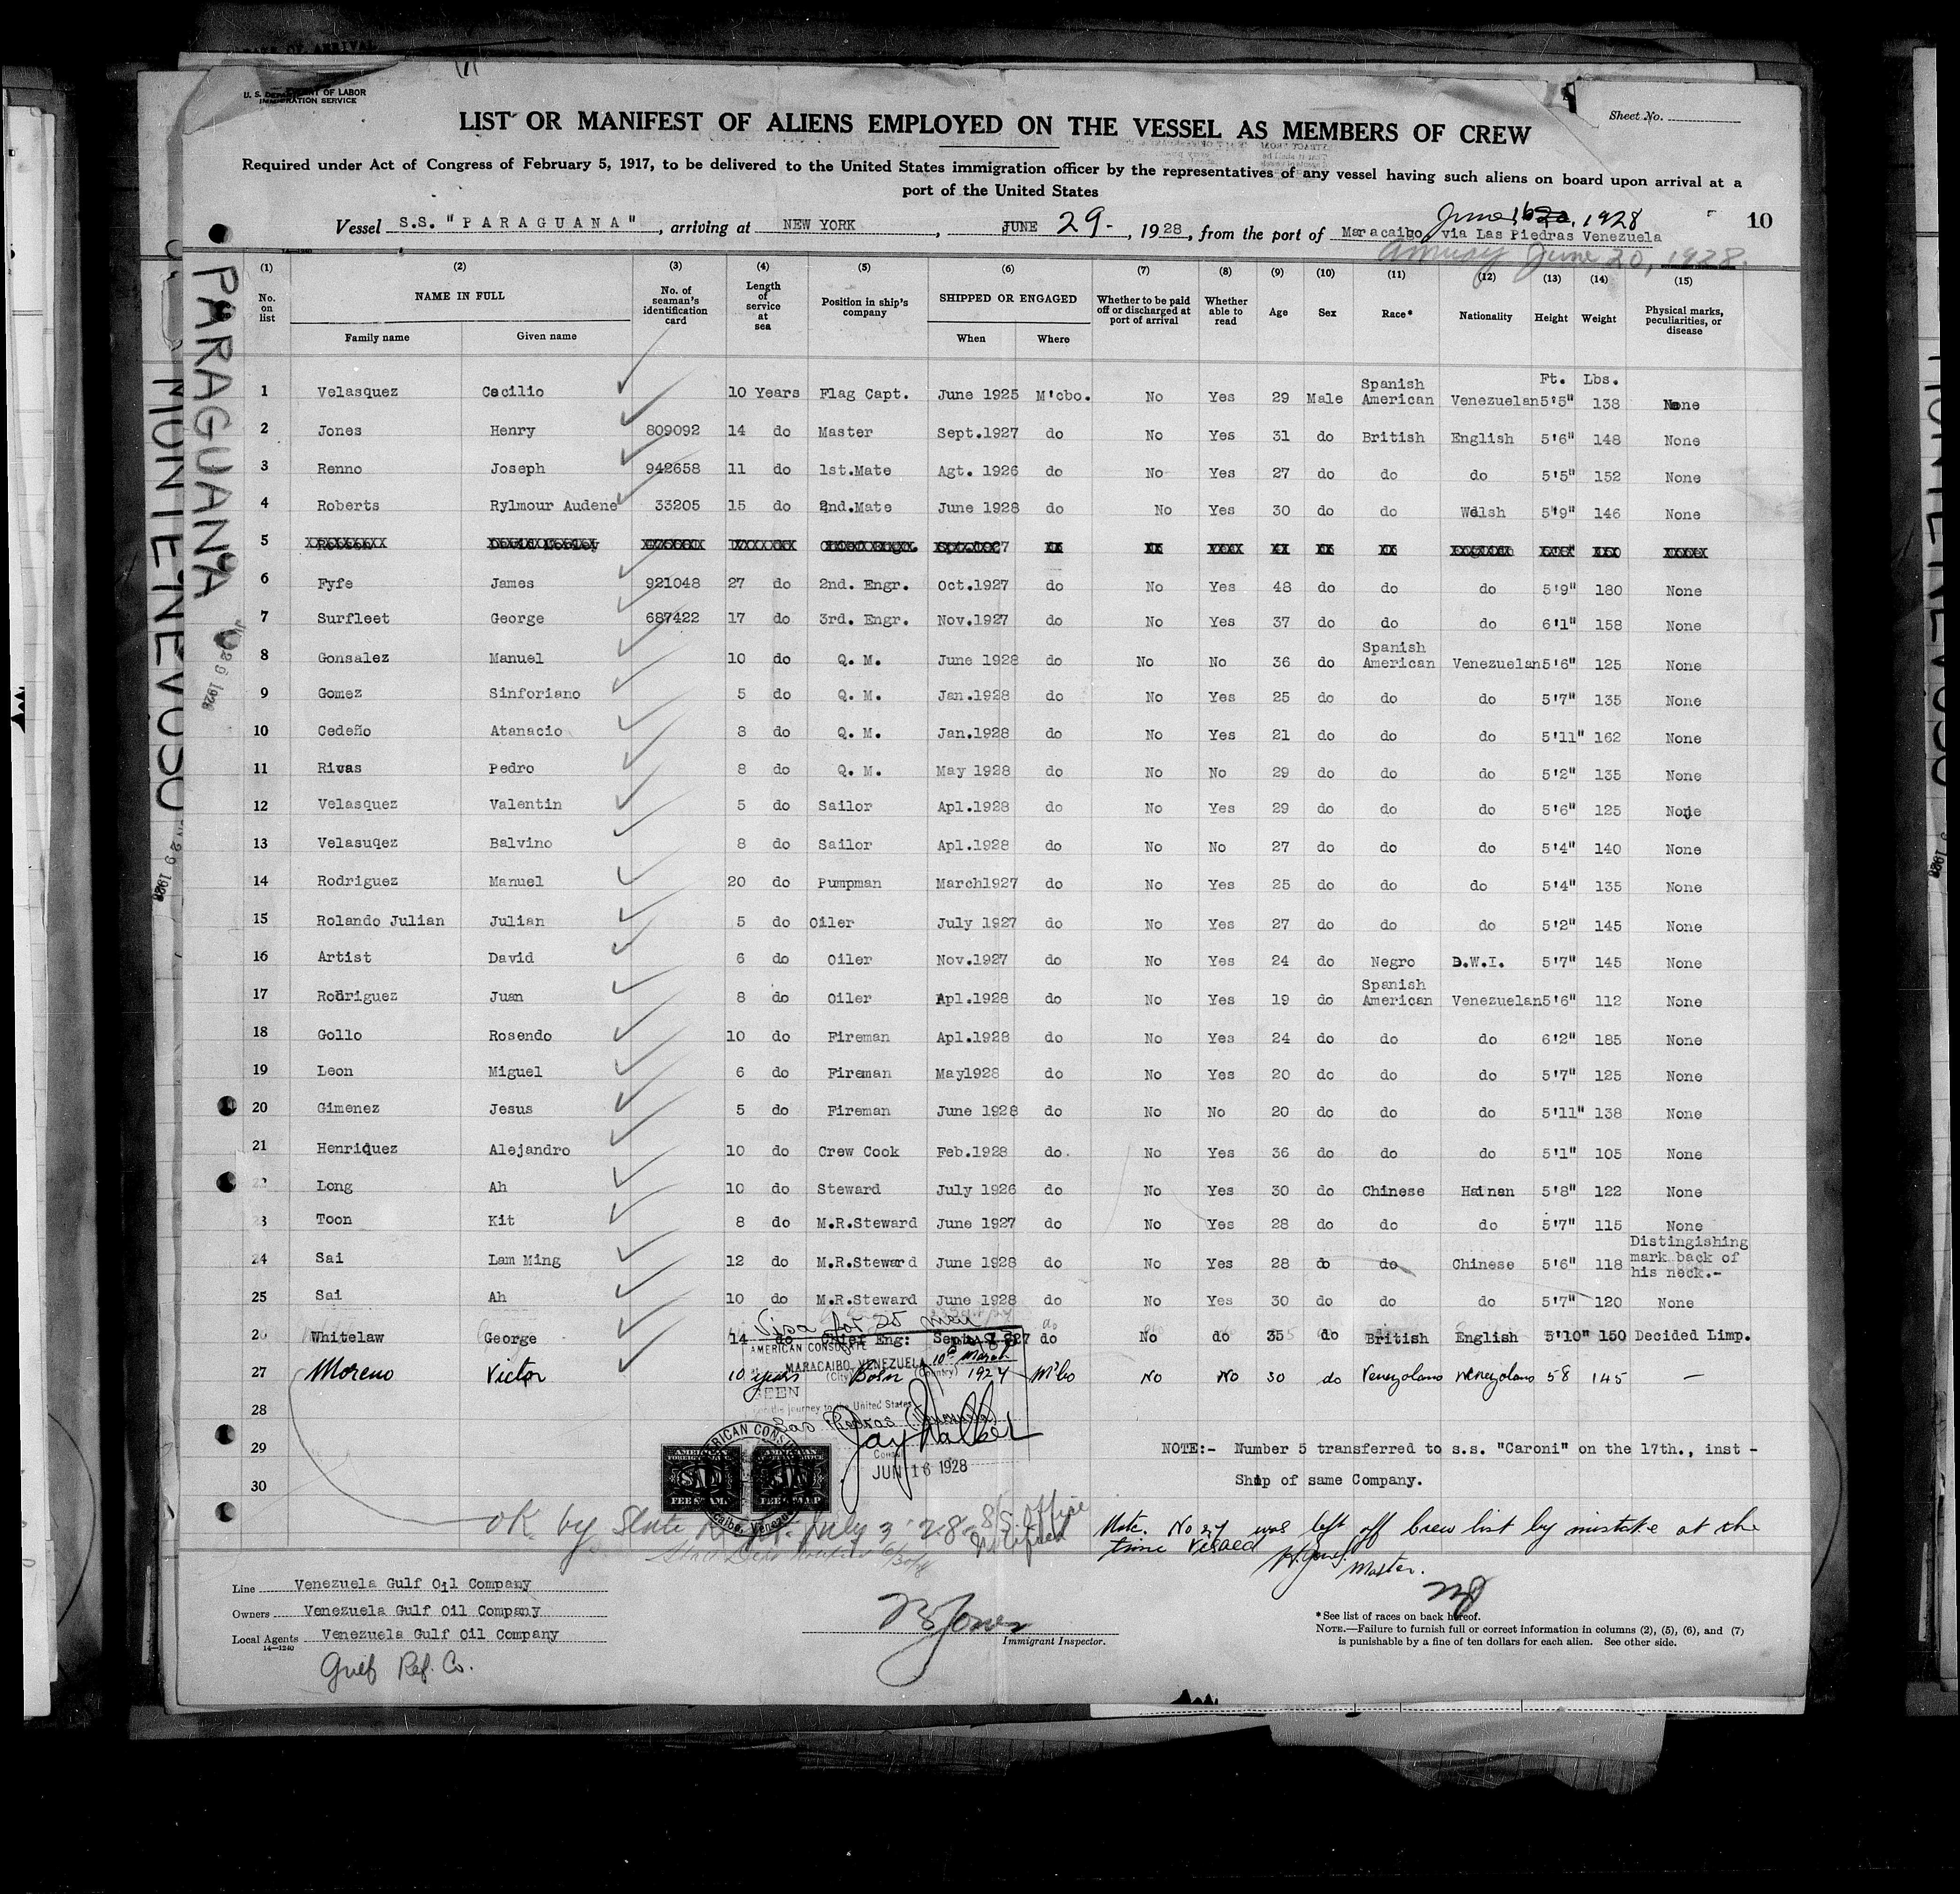 U. S. DEPARTMENT OF LABOR
IMMIGRATION SERVICE
Sheet No.
LIST OR MANIFEST OF ALIENS EMPLOYED ON THE VESSEL AS MEMBERS OF CREW
Required under Act of Congress of February 5, 1917, to be delivered to the United States immigration officer by the representatives of any vessel having such aliens on board upon arrival at a
port of the United States
June 16 20, 1928
Vessel S.S. "PARAGUANA", arriving at NEW YORK, JUNE 29-, 1928, from the port of Maracaibo, via Las Piedras Venezuela 10
Amuay June 20, 1928.
PARAGUANA
JUN 29 1928
(1) (2) (3) (4) (5) (6) (7) (8) (9) (10) (11) (12) (13) (14) (15)
No. on list NAME IN FULL Family name Given name No. of seaman's identification card Length of service at sea Position in ship's company SHIPPED OR ENGAGED When Where Whether to be paid off or discharged at port of arrival Whether able to read Age Sex Race* Nationality Height Weight Physical marks, peculiarities, or disease
Ft. Lbs.
1 Velasquez Cecilio 10 Years Flag Capt. June 1925 M'cbo. No Yes 29 Male Spanish American Venezuelan 5'5" 138 None
2 Jones Henry 809092 14 do Master Sept.1927 do No Yes 31 do British English 5'6" 148 None
3 Renno Joseph 942658 11 do 1st.Mate Agt. 1926 do No Yes 27 do do do 5'5" 152 None
4 Roberts Rylmour Audene 33205 15 do 2nd.Mate June 1928 do No Yes 30 do do Welsh 5'9" 146 None
5
6 Fyfe James 921048 27 do 2nd. Engr. Oct.1927 do No Yes 48 do do do 5'9" 180 None
7 Surfleet George 687422 17 do 3rd. Engr. Nov.1927 do No Yes 37 do do do 6'1" 158 None
8 Gonsalez Manuel 10 do Q. M. June 1928 do No No 36 do Spanish American Venezuelan 5'6" 125 None
9 Gomez Sinforiano 5 do Q. M. Jan.1928 do No Yes 25 do do do 5'7" 135 None
10 Cedeño Atanacio 8 do Q. M. Jan.1928 do No Yes 21 do do do 5'11" 162 None
11 Rivas Pedro 8 do Q. M. May 1928 do No No 29 do do do 5'2" 135 None
12 Velasquez Valentin 5 do Sailor Apl.1928 do No Yes 29 do do do 5'6" 125 None
13 Velasuqez Balvino 8 do Sailor Apl.1928 do No No 27 do do do 5'4" 140 None
14 Rodriguez Manuel 20 do Pumpman March1927 do No Yes 25 do do do 5'4" 135 None
15 Rolando Julian Julian 5 do Oiler July 1927 do No Yes 27 do do do 5'2" 145 None
16 Artist David 6 do Oiler Nov.1927 do No Yes 24 do Negro D.W.I. 5'7" 145 None
17 Rodriguez Juan 8 do Oiler Apl.1928 do No Yes 19 do Spanish American Venezuelan 5'6" 112 None
18 Gollo Rosendo 10 do Fireman Apl.1928 do No Yes 24 do do do 6'2" 185 None
19 Leon Miguel 6 do Fireman May1928 do No Yes 20 do do do 5'7" 125 None
20 Gimenez Jesus 5 do Fireman June 1928 do No No 20 do do do 5'11" 138 None
21 Henriquez Alejandro 10 do Crew Cook Feb.1928 do. No Yes 36 do do do 5'1" 105 None
22 Long Ah 10 do Steward July 1926 do No Yes 30 do Chinese Hainan 5'8" 122 None
23 Toon Kit 8 do M.R.Steward June 1927 do No Yes 28 do do do 5'7" 115 None
24 Sai Lam Ming 12 do M.R.Steward June 1928 do No Yes 28 do do Chinese 5'6" 118 Distingishing mark back of his neck.-
25 Sai Ah 10 do M.R.Steward June 1928 do No Yes 30 do do do 5'7" 120 None
Visa for 25 men
26 Whitelaw George 14 do Chief Eng: Sept. 1927 do No do 35 do British English 5'10" 150 Decided Limp.
AMERICAN CONSULATE
MARACAIBO, VENEZUELA
27 Moreno Victor 10 years Bos'n 10th March 1927 M'bo No No 30 do Venezolano Venezolano 58 145 —
SEEN
28
For the journey to the United States
Las Piedras (Venezuela)
Jay Walker
29
NOTE:- Number 5 transferred to s.s. "Caroni" on the 17th., inst -
JUN 16 1928
30
Ship of same Company.
AMERICAN FOREIGN SERVICE FEE STAMP
OK by State Dept. July 3 '28 - Office notified
Note. No 27 was left off Crew list by mistake at the
time visaed
H. Jones. Master.
Line Venezuela Gulf Oil Company
Owners Venezuela Gulf Oil Company
Local Agents Venezuela Gulf Oil Company
14—1240
Gulf Ref. Co.
Jones
Immigrant Inspector.
*See list of races on back hereof.
NOTE.—Failure to furnish full or correct information in columns (2), (5), (6), and (7)
is punishable by a fine of ten dollars for each alien. See other side.